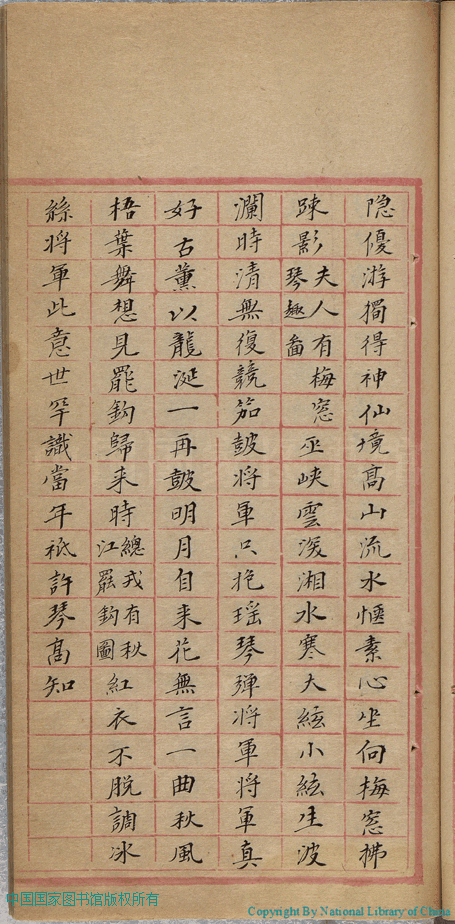 隐優游獨得神仙境髙山流水愜素心坐向梅窓拂
踈影夫人有梅窓琴趣啚巫峽雲深湘水寒大絃小絃生波
瀾時清無復競笳皷将軍只抱瑶琴弹将軍将軍真
好古薰以龍涎一再皷明月自来花無言一曲秋風
梧葉舞想見罷釣歸来時總戎有秋江罷釣圖紅衣不脱調冰
絲将軍此意世罕識當年祗許琴髙知
中国国家图书馆版权所有
Copyright By National Library of China